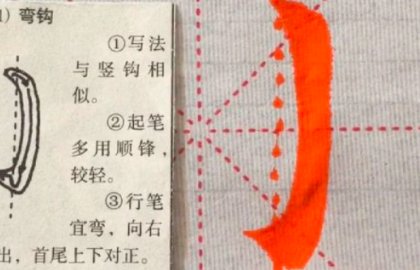 1) 弯钩
①写法
与竖钩相
似。
②起笔
多用顺锋，
较轻。
③行笔
宜弯，向右
出，首尾上下对正。